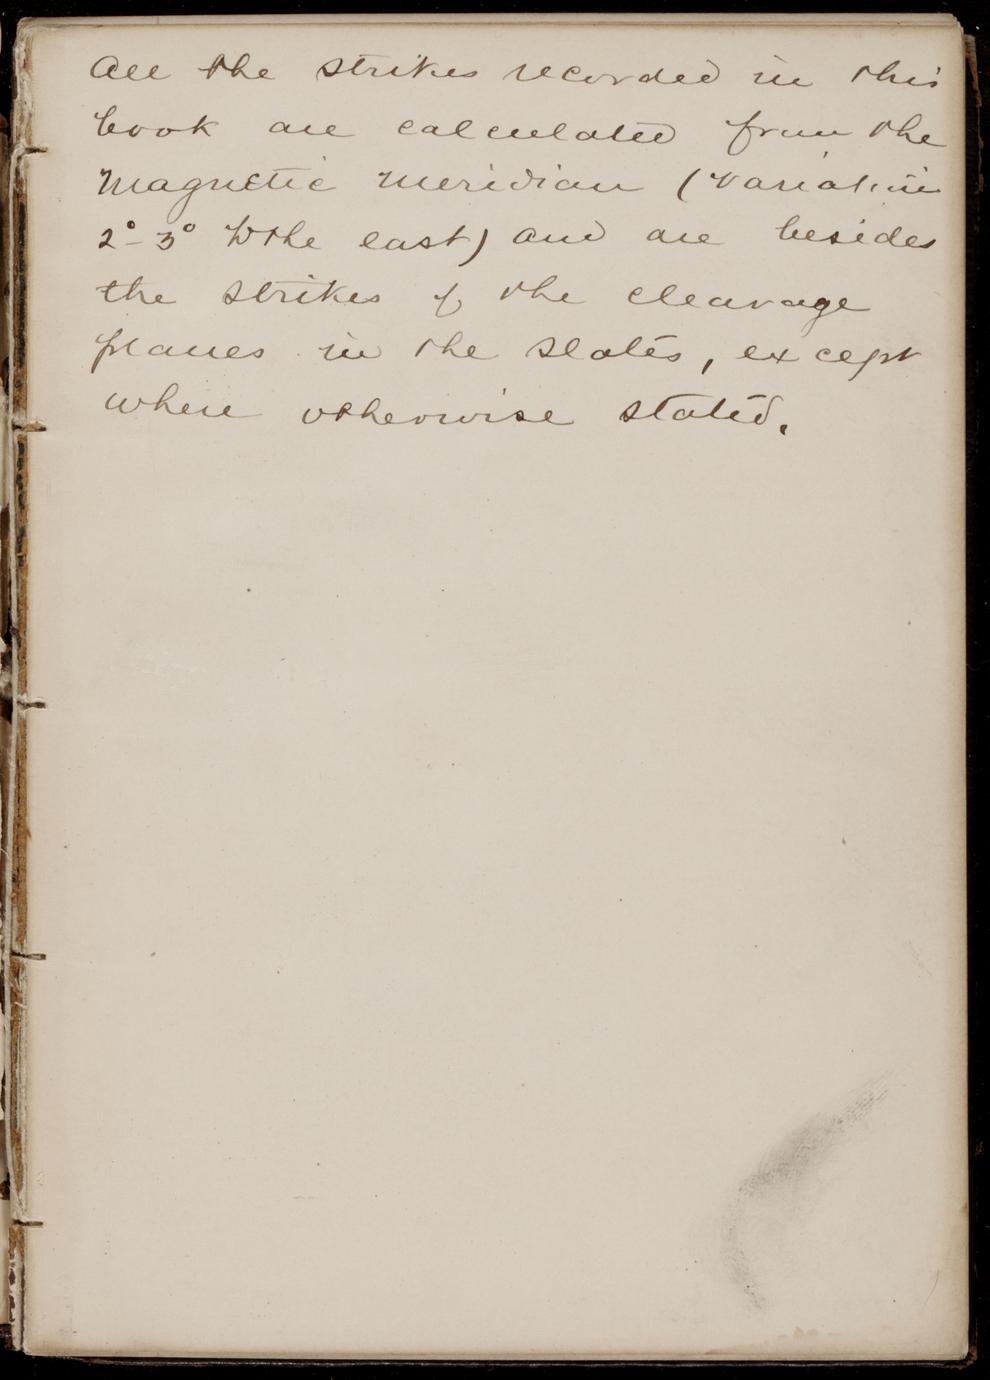 All the strikes recorded in this
book are calculated from the
Magnetic Meridian (Variation
2°-3° to the east) and are besides
the strikes of the cleavage
planes in the slates, except
where otherwise stated.